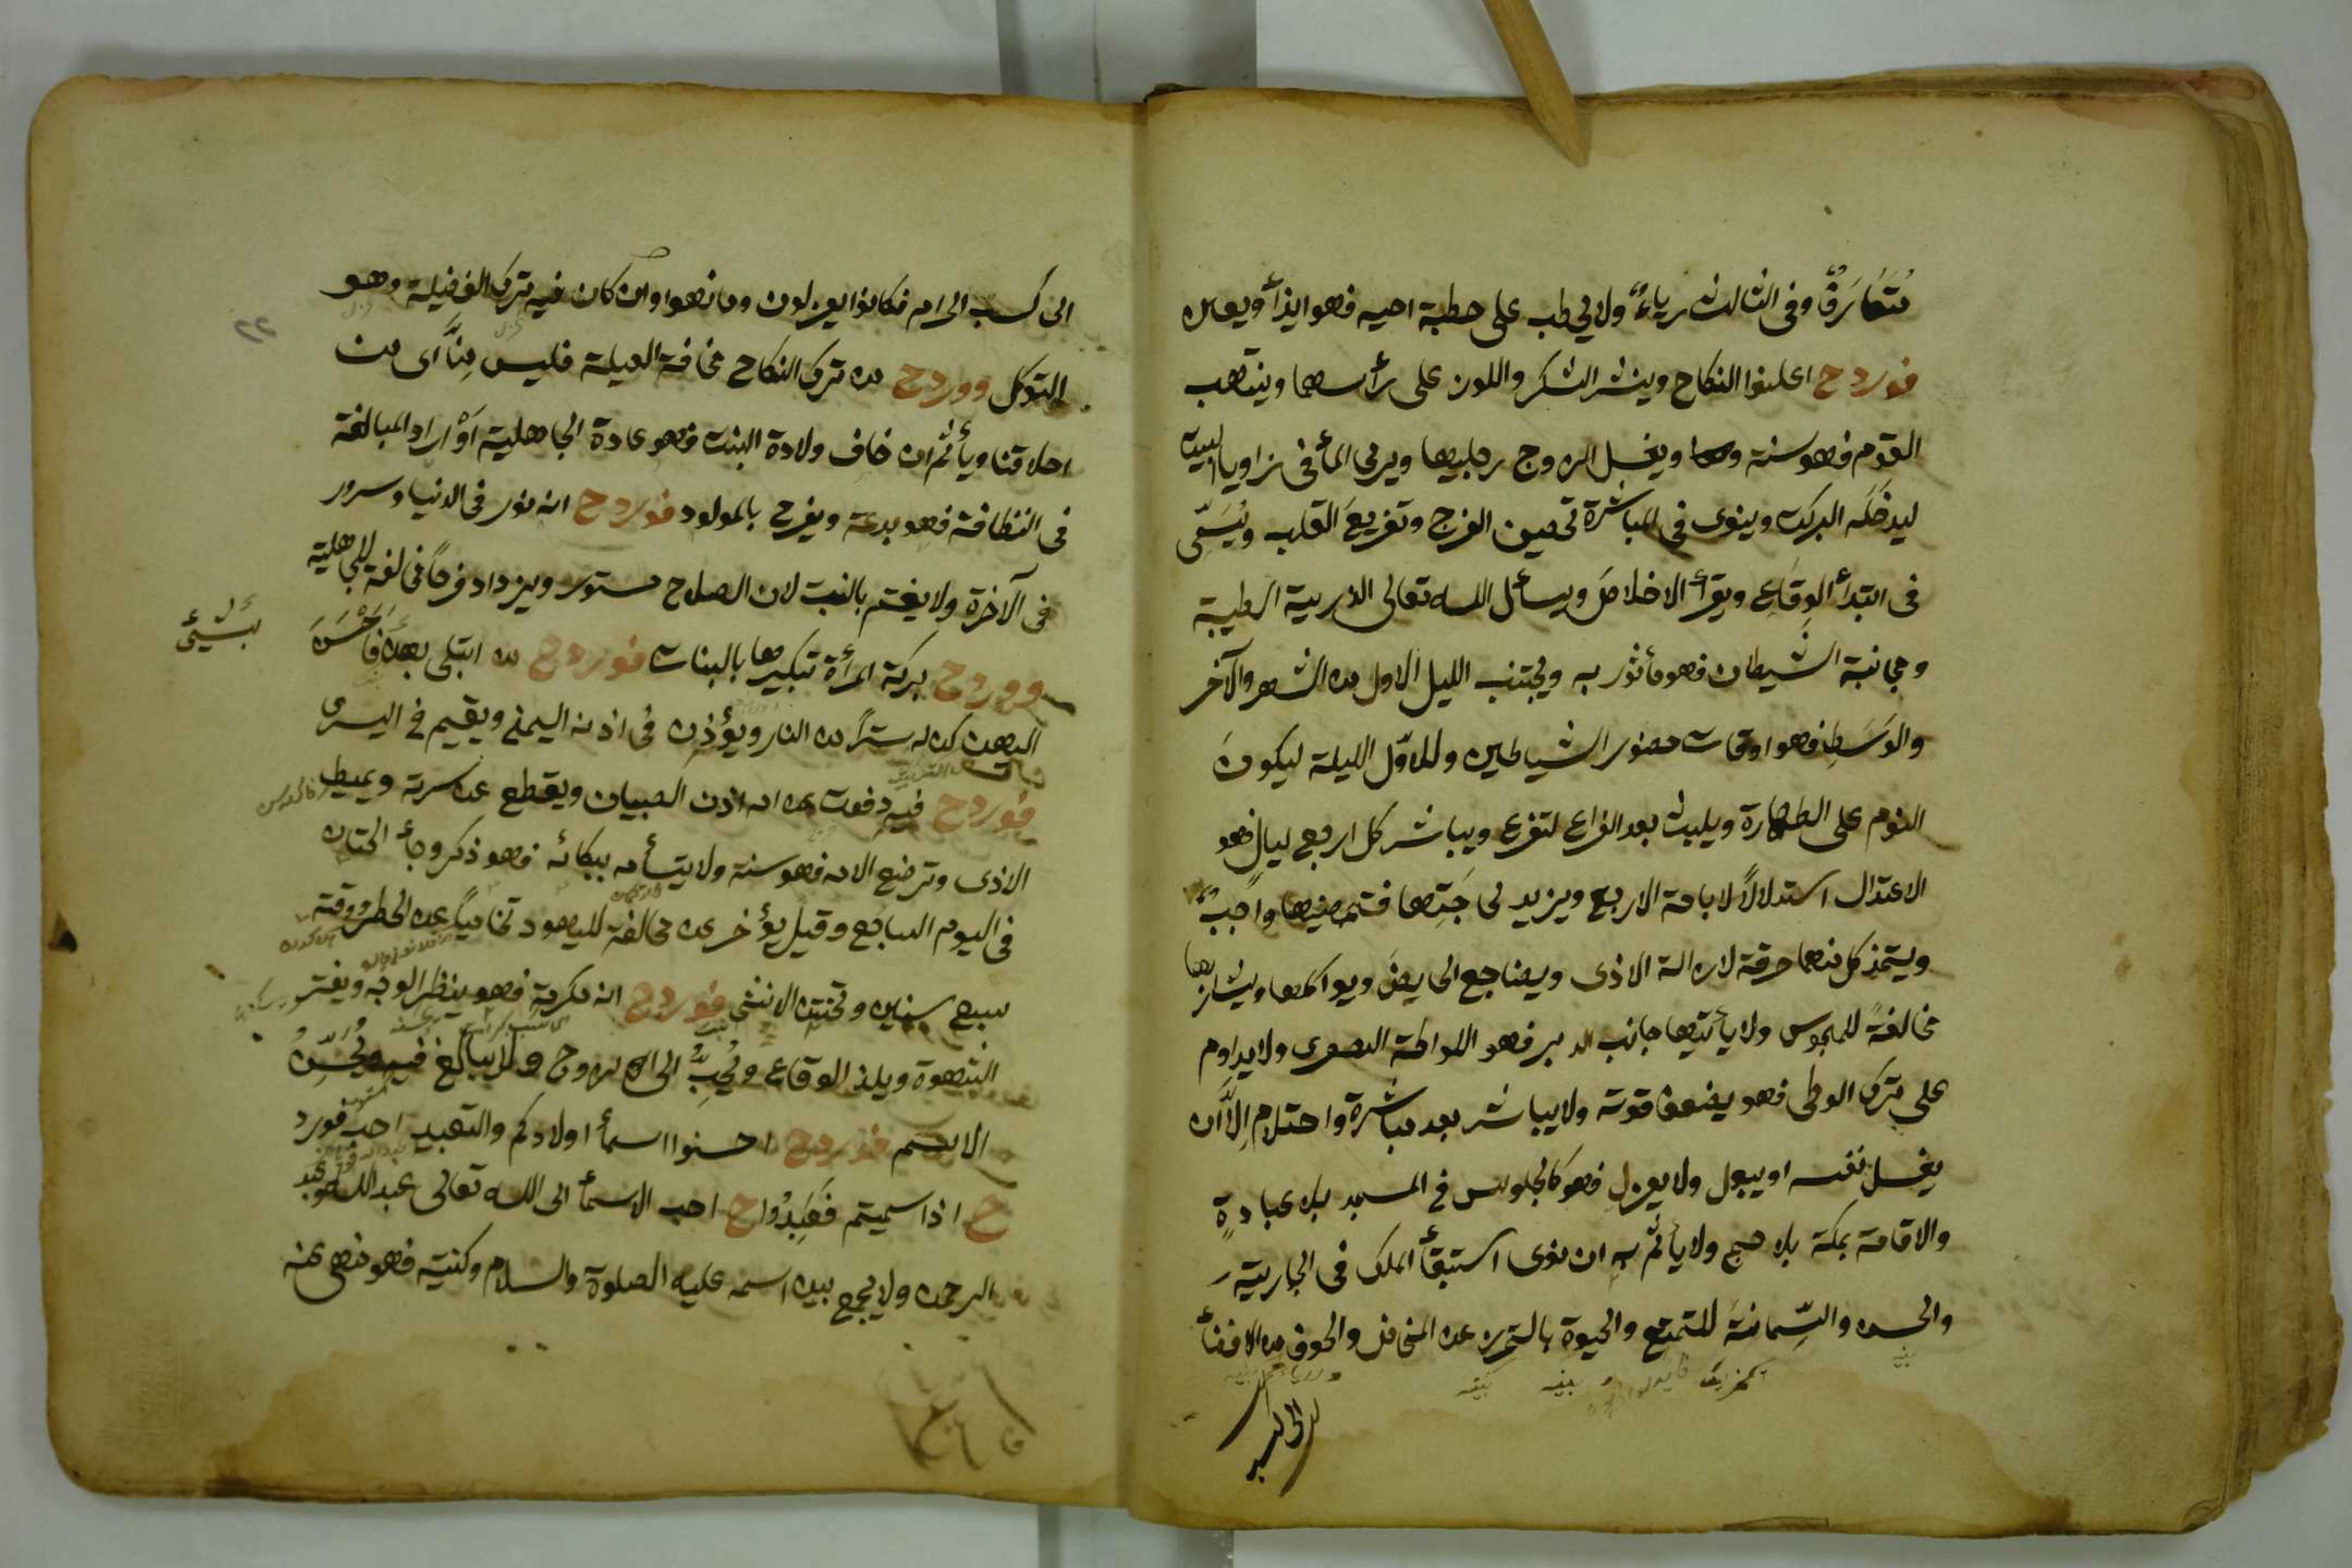 مُتَعَارَفٌ وفى الثالث رياءٌ ولا يخطب على خطبة اخيه فهو ايذأ ويعلن
فورد ح اعلنوا النكاح وينثر السكر واللوز على رأسهما وينتهب
القوم فهو سنة ويغسل الزوج رجليها ويرمى المأ فى زوايا البيت
ليدخله البركة وينوى فى المباشرة تحصين الفرج وتفريغ القلب ويُسَمّى
فى ابتدأ الوِقَاعِ ويقرأ الاخلاصَ ويسأل الله تعالى الذرية الطيبة
ومجانبة الشيطان فهو مأثور به ويجتنب الليل الاول من الشهر والآخر
والوَسَطِ فهو اوقات حضور الشياطين وللاوّل الليلة ليكونَ
النوم على الطهارة ويلبث بعد الفراغ لتفرغ ويباشر كل اربع ليالٍ فهو
الاعتدال استدلالاً لاباحة الاربع ويزيد لحاجتها فتحصينها واجبٌ
ويتخذ كل منهما خرقة لازالة الاذى ويضاجع الحايض ويواكلها ويشاربها
مخالفةً للمجوس ولا يأتيها جانب الدبر فهو اللواطة الصغرى ولا يداوم
على ترك الوطى فهو يضعف قوته ولا يباشر بعد مباشرة واحتلام اِلاَّ ان
يغسل نفسه او يبول ولا يعزل فهو كالجلوس فى المسجد بلا عبادةٍ
والاقامة بمكة بلا حج ولا يأثم به ان نوى استبقأ الملك فى الجارية
والحسن والسِّمانةَ للتمتع والحيوة بالتحرز عن المخاض والخوف من الافضأ
الى كسب الحرام فكانوا يعزلون وما نهوا وان كان فيه ترك الفضيلة وهو
التوكل وورد ح من ترك النكاح مخافة العيلة فليس مِنَّا اى من
اخلاقنا ويأثم ان خاف ولادة البنت فهو عادة الجاهلية اَوْ اراد المبالغة
فى النظافة فهو بدعة ويفرح بالمولود فورد ح انه نور فى الدنيا وسرور
فى الآخرة ولا يغتم بالبنت لان الصلاح مستور ويزداد فرحاً مخالفة للجاهلية
وورد ح بركة المرأة تبكيرها بالبنات فورد ح من ابتلى بهذه فَأَحْسَنَ
بشئ
اليهن كن له ستراً من النار ويؤذن فى اذنه اليمنى ويقيم فى اليسرى
فورد ح فيه دفعت عنه ام الصبيان ويقطع عنه سرته ويميط
الاذى وترضع الام فهو سنة ولا يتسأم ببكائه فهو ذكر وجأ الختان
فى اليوم السابع وقيل يؤخر عنه مخالفة لليهود تحامياً عن الخطر ووقته
سبع سنين وتختن الانثى فورد ح انه مكرمة فهو ينظر الوجه ويفتر
الشهوة ويلذ الوقاع ويُحِبُّ الى الزوج ولا يبالغ فيه ويُحَسِّنُ
الاسم فورد ح احسنوا اسمأ اولادكم والتعبيد احب فورد
ح اذا سميتم فَعَبِدُوا ح احب الاسمأ الى الله تعالى عبد الله وعبد
الرحمن ولا يجمع بين اسمه عليه الصلوة والسلام وكنيته فهو منهى عنه